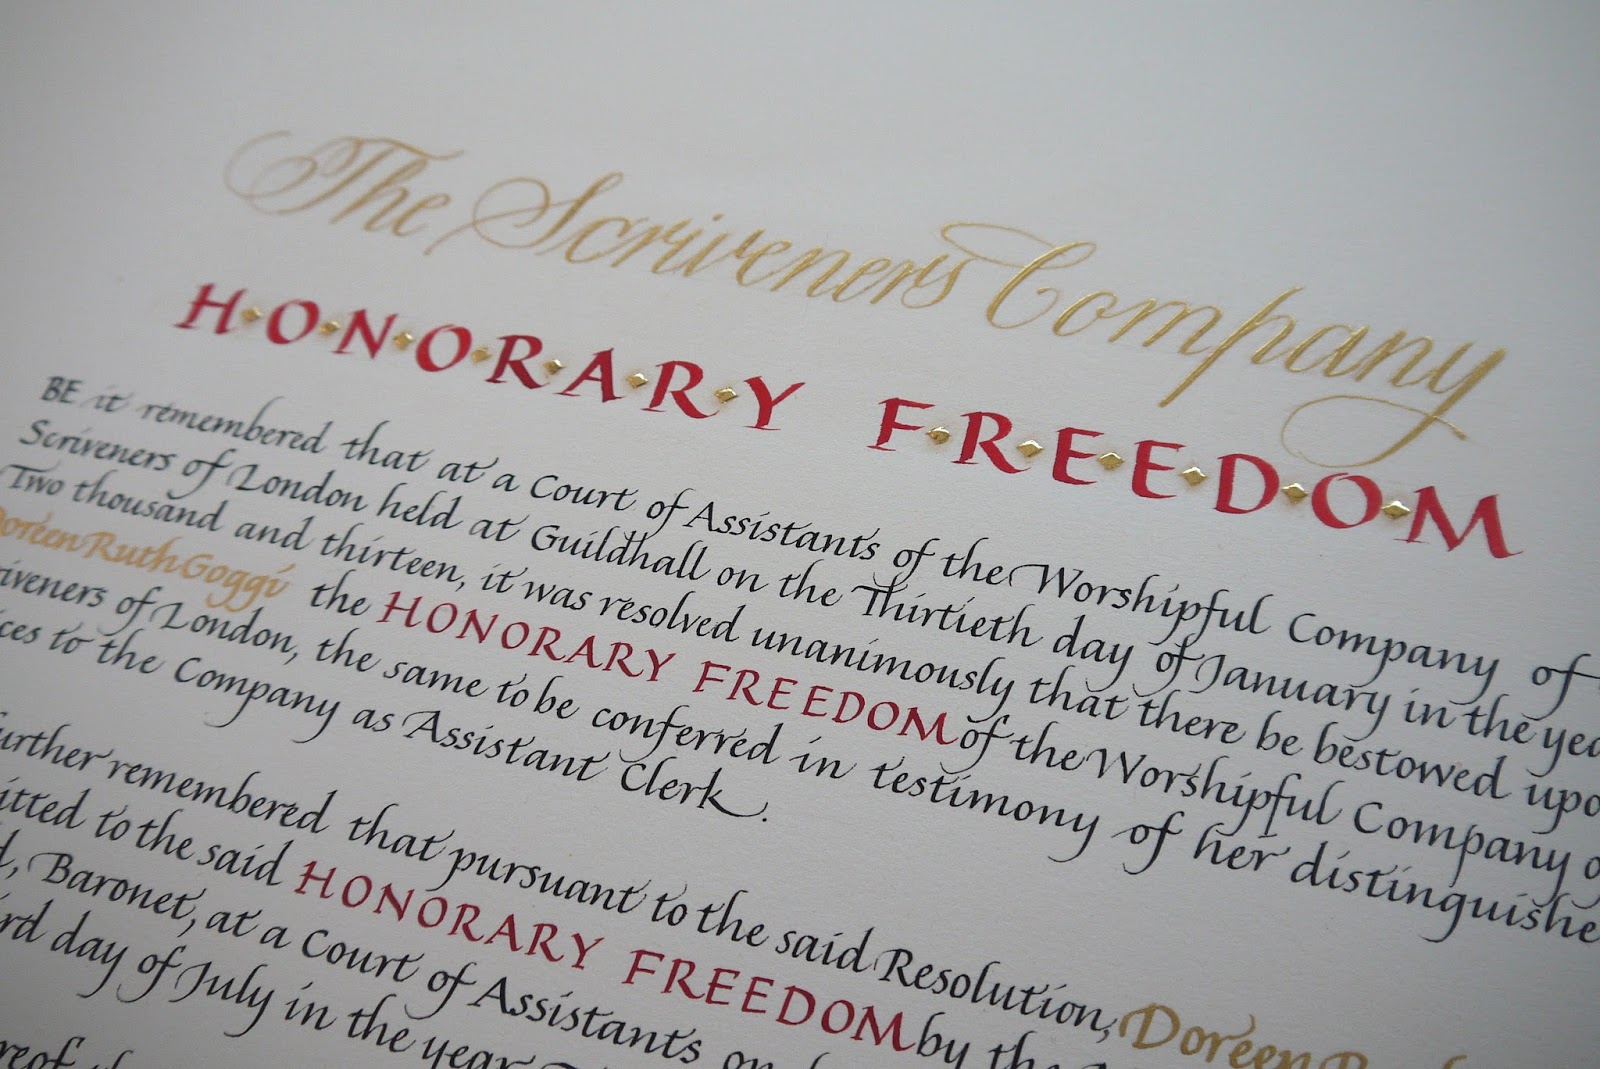 The Scriveners Company
H·O·N·O·R·A·R·Y F·R·E·E·D·O·M
BE it remembered that at a Court of Assistants of the Worshipful Company of
Scriveners of London held at Guildhall on the Thirtieth day of January in the
Two thousand and thirteen, it was resolved unanimously that there be bestowed
Doreen Ruth Goggi the HONORARY FREEDOM of the Worshipful Company
of London, the same to be conferred in testimony of her
to the Company as Assistant Clerk.
remembered that pursuant to the said Resolution, Doreen
to the said HONORARY FREEDOM by the
Baronet, at a Court of Assistants on
day of July in the year